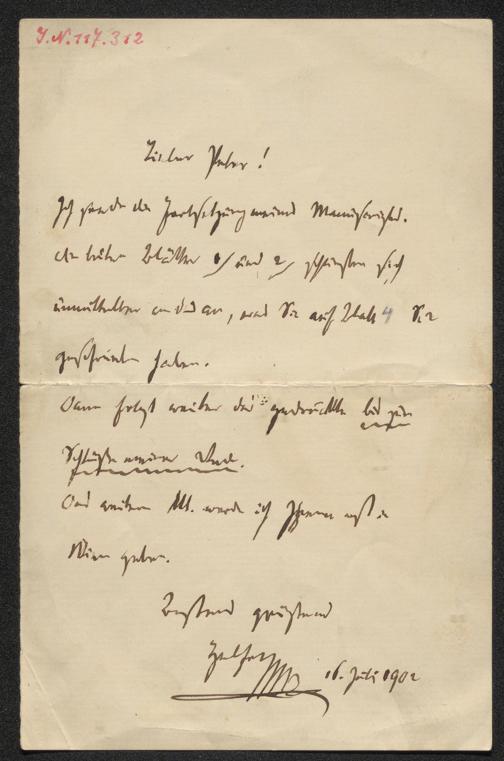 J.N. 117.312
Lieber Peter!
Ich sende die Fortsetzung meines Manuscriptes.
die beiden Blätter 1/ und 2/ schließen sich
unmittelbar an das an, was Sie auf Blatt 4
geschrieben haben.
Dann folgt weiter das gedruckte bis zum
Schlusse meiner Rede.
Das weitere M. werde ich Ihnen erst in
Wien geben.
Bestens grüßend
16. Juli 1902